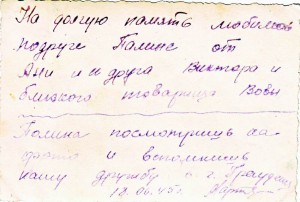 На долгую память любимой
подруге Полине от
Ани и её друга Виктора и
близкого товарища Вовы
Полина посмотришь на
фото и вспомнишь
нашу дружбу в г. Грауденц
18.06.45 г.